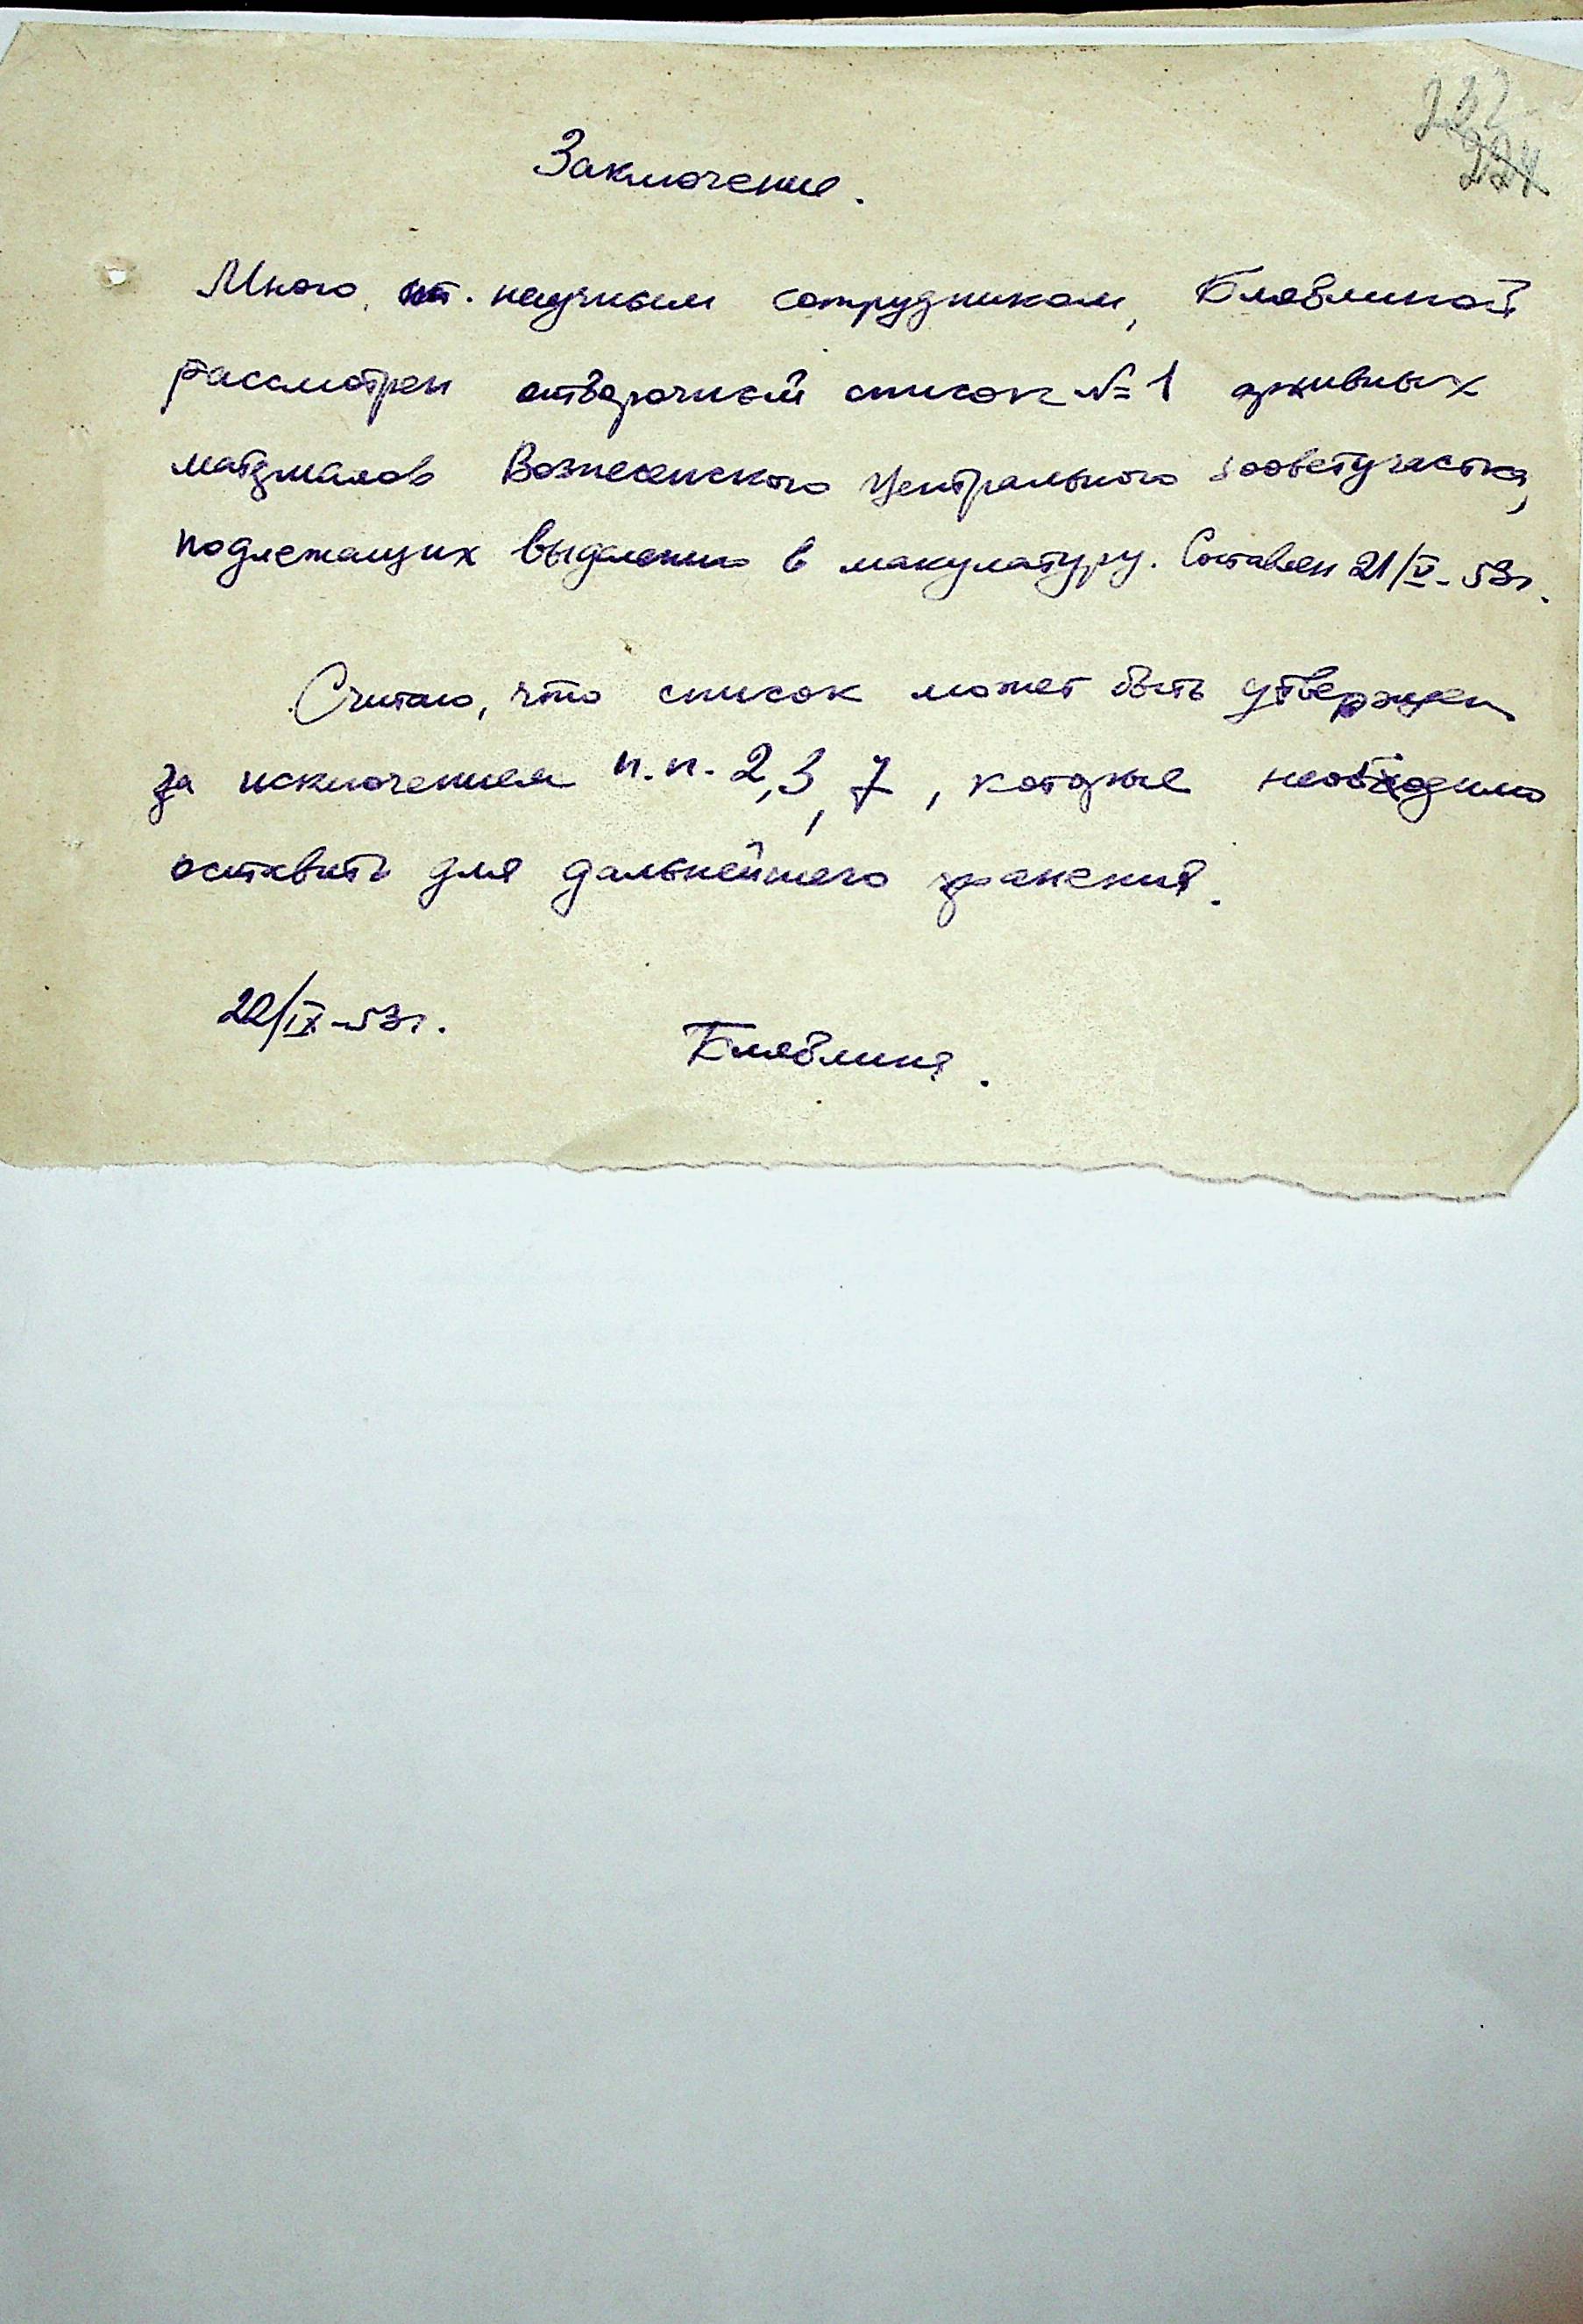 232
224
Заключение.
Мною, ст. научным сотрудником, Блявлиной
рассмотрен отборочный список № 1 архивных
материалов Вознесенского Центрального зооветучастка,
подлежащих выделению в макулатуру. Составлен 21/V-53г.
Считаю, что список может быть утвержден
за исключением п.п. 2,3,7, которые необходимо
оставить для дальнейшего хранения.
22/IX-53г.